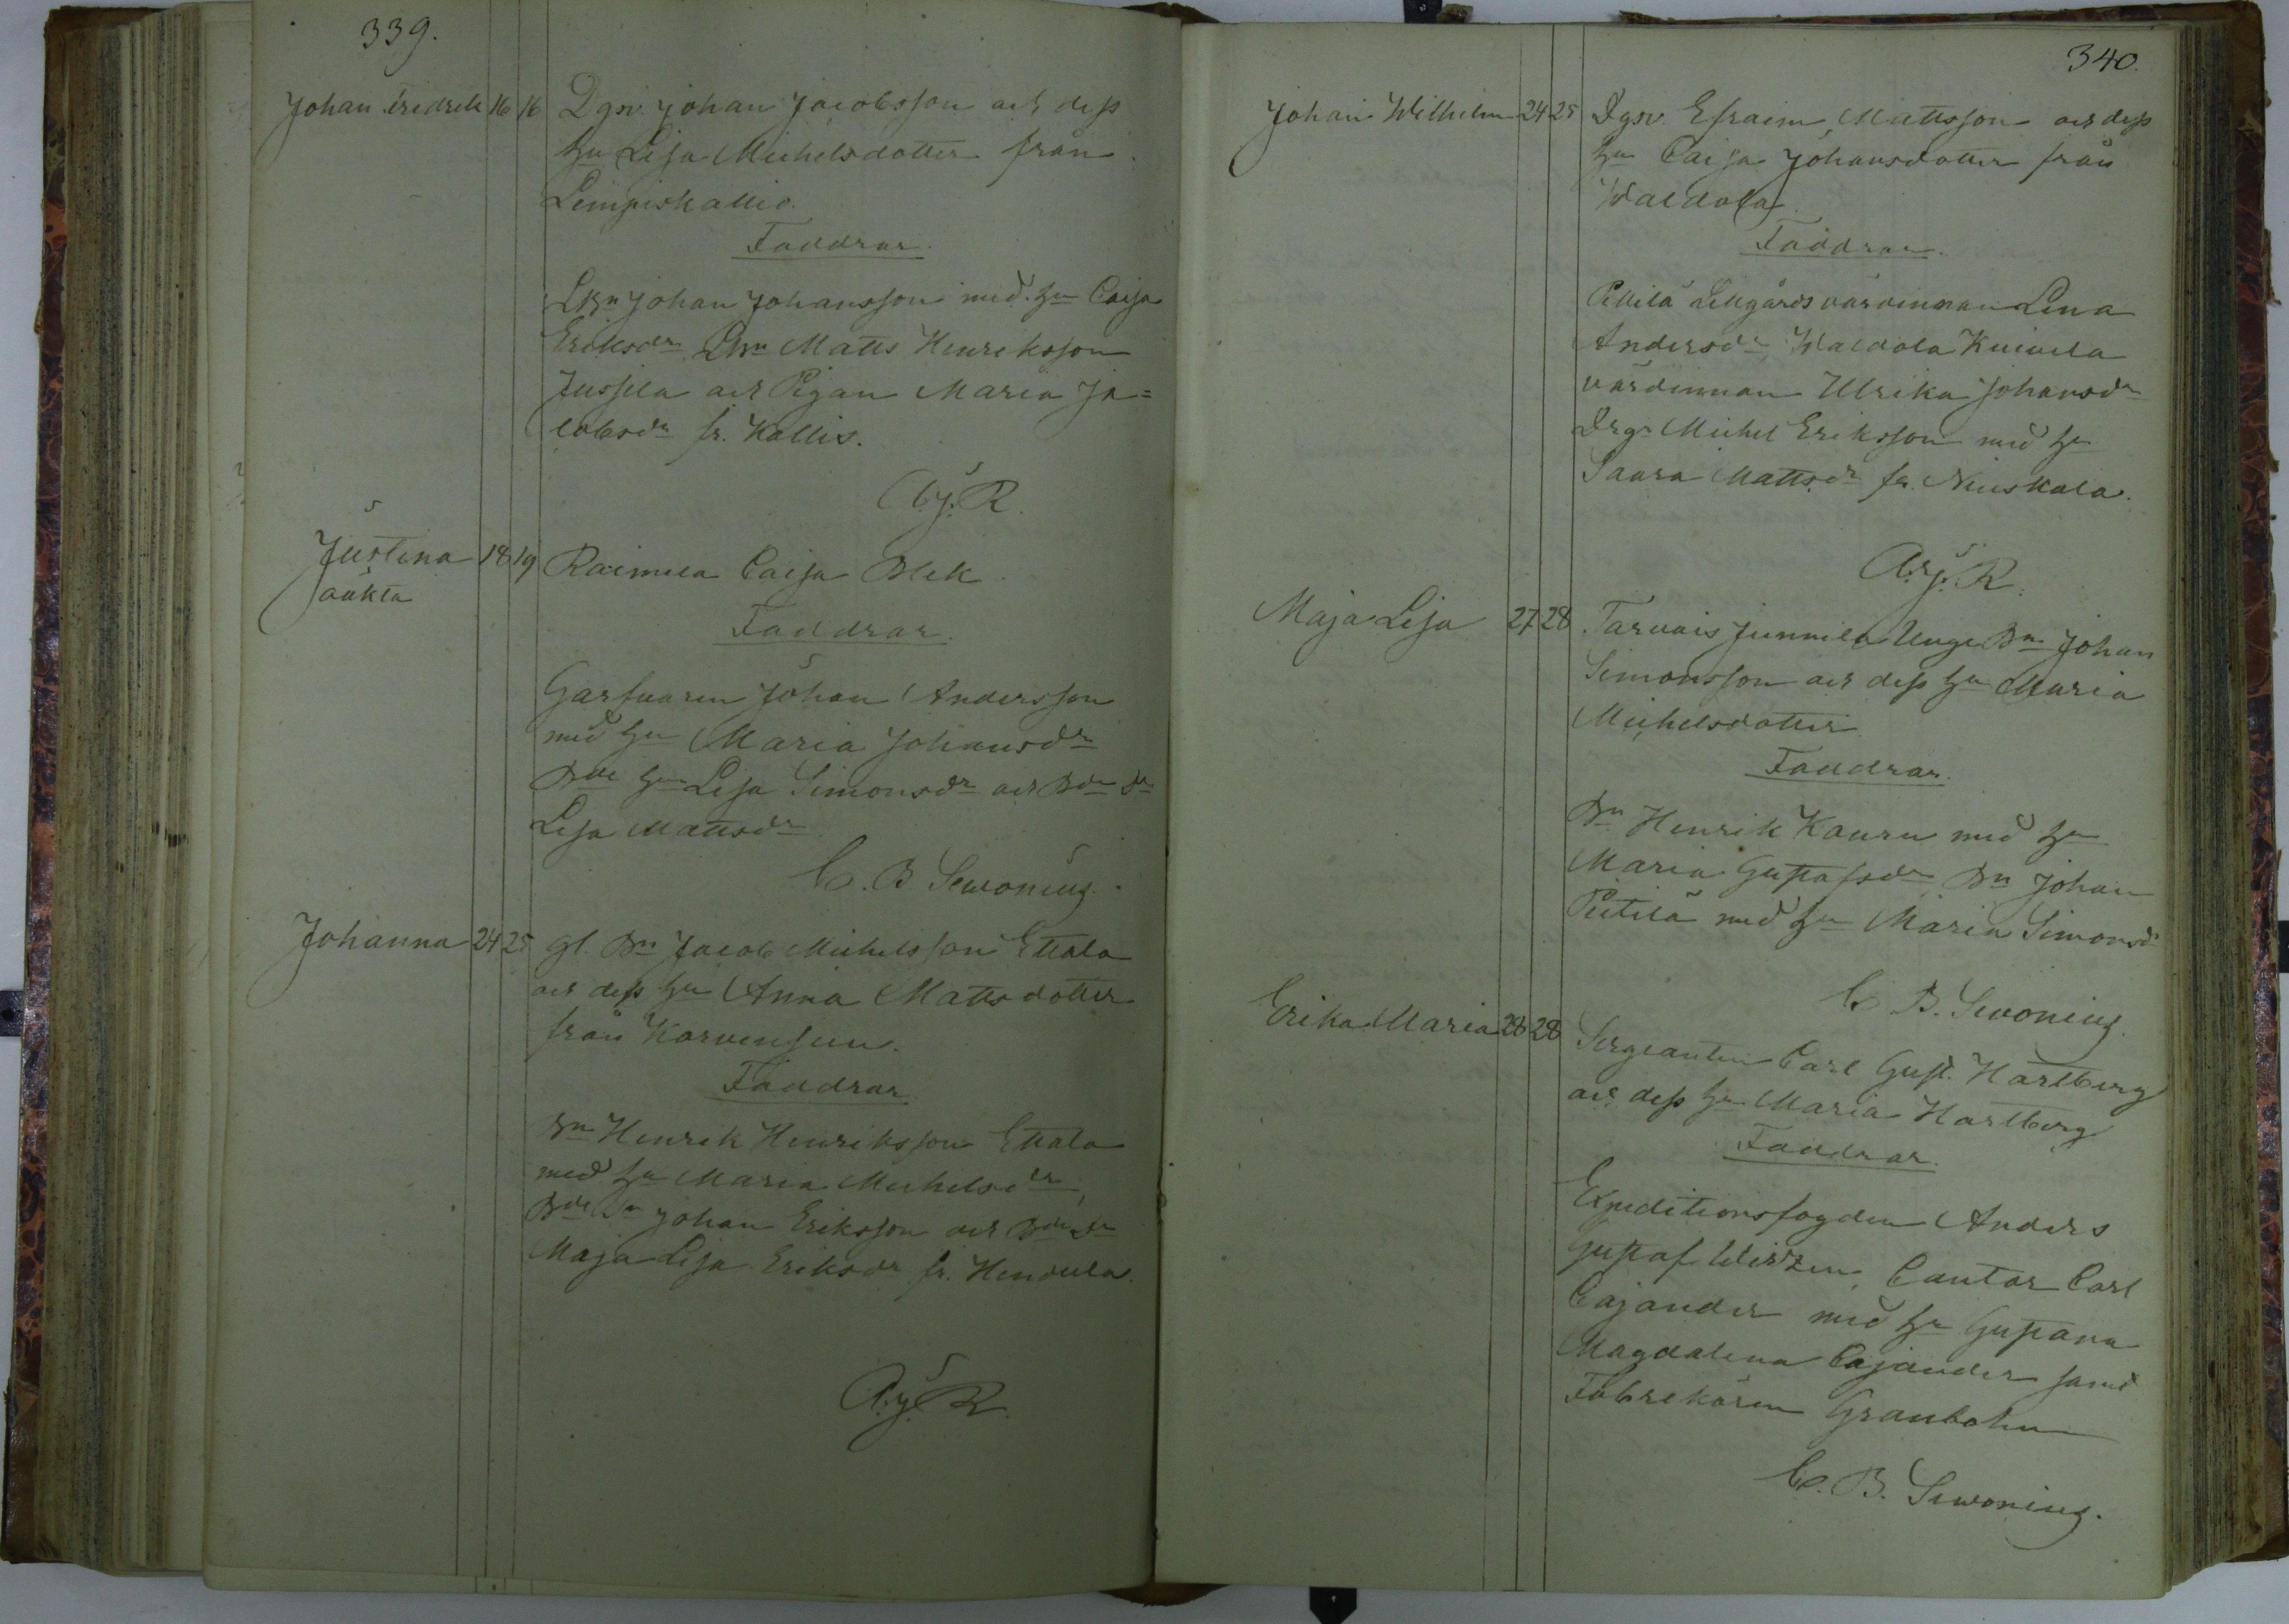 339.
Johan Fredrik 16 16 Dgsv. Johan Jacobsson och dess
hu Lisa Michelsdotter från
Lempiskallio.
Faddrar.
Johan Johansson med hu Caisa
Eriksdr Matts Henriksson
Jussila och Pigan Maria Ja=
cobsdr fr. Kallis.
R.
Justina 18 19 Raimela Caisa Blek
oäkta
Faddrar.
Garfvaren Johan Andersson
med hu Maria Johansdr
Bde hu Lisa Simonsdr och Bde dr
Lisa Mattsdr
C. B. Sewonius.
Johanna 24 25 gl. Bn Jacob Michelsson Ettala
och dess hu Anna Mattsdotter
från Korvensuu.
Faddrar
Bn Henrik Henriksson Ettala
med hu Maria Michelsdr,
Bde Sn Johan Eriksson och Bde dr
Maja Lisa Eriksdr fr. Hendula.
R.
340.
Johan Wilhelm 24 25 Dgsv. Efraim Mattsson och dess
hu Caisa Johansdotter från
Waldola.
Faddrar.
Pellilä Lillgårds värdinnan Lena
Andersdr Waldola Knivila
värdinnan Ulrika Johansdr
Drgn Michel Eriksson med hu
Saara Mattsdr fr. Niuskala.
R.
Maja Lisa 27 28 Tarvais Junnila Unge Bn Johan
Simonsson och dess hu Maria
Michelsdotter
Faddrar.
Bn Henrik Kauru med hu
Maria Gustafsdr Bn Johan
Pietilä med hu Maria Simonsdr
C. B. Sewonius.
Erika Maria 28 28 Sergeanten Carl Gust. Harlberg
och dess hu Maria Harlberg
Faddrar.
Expeditionsfogden Anders
Gustaf Wirzen, Cantor Carl
Cajander med hu Gustava
Magdalena Cajander samt
Fabrikören Granholm
C. B. Sewonius.